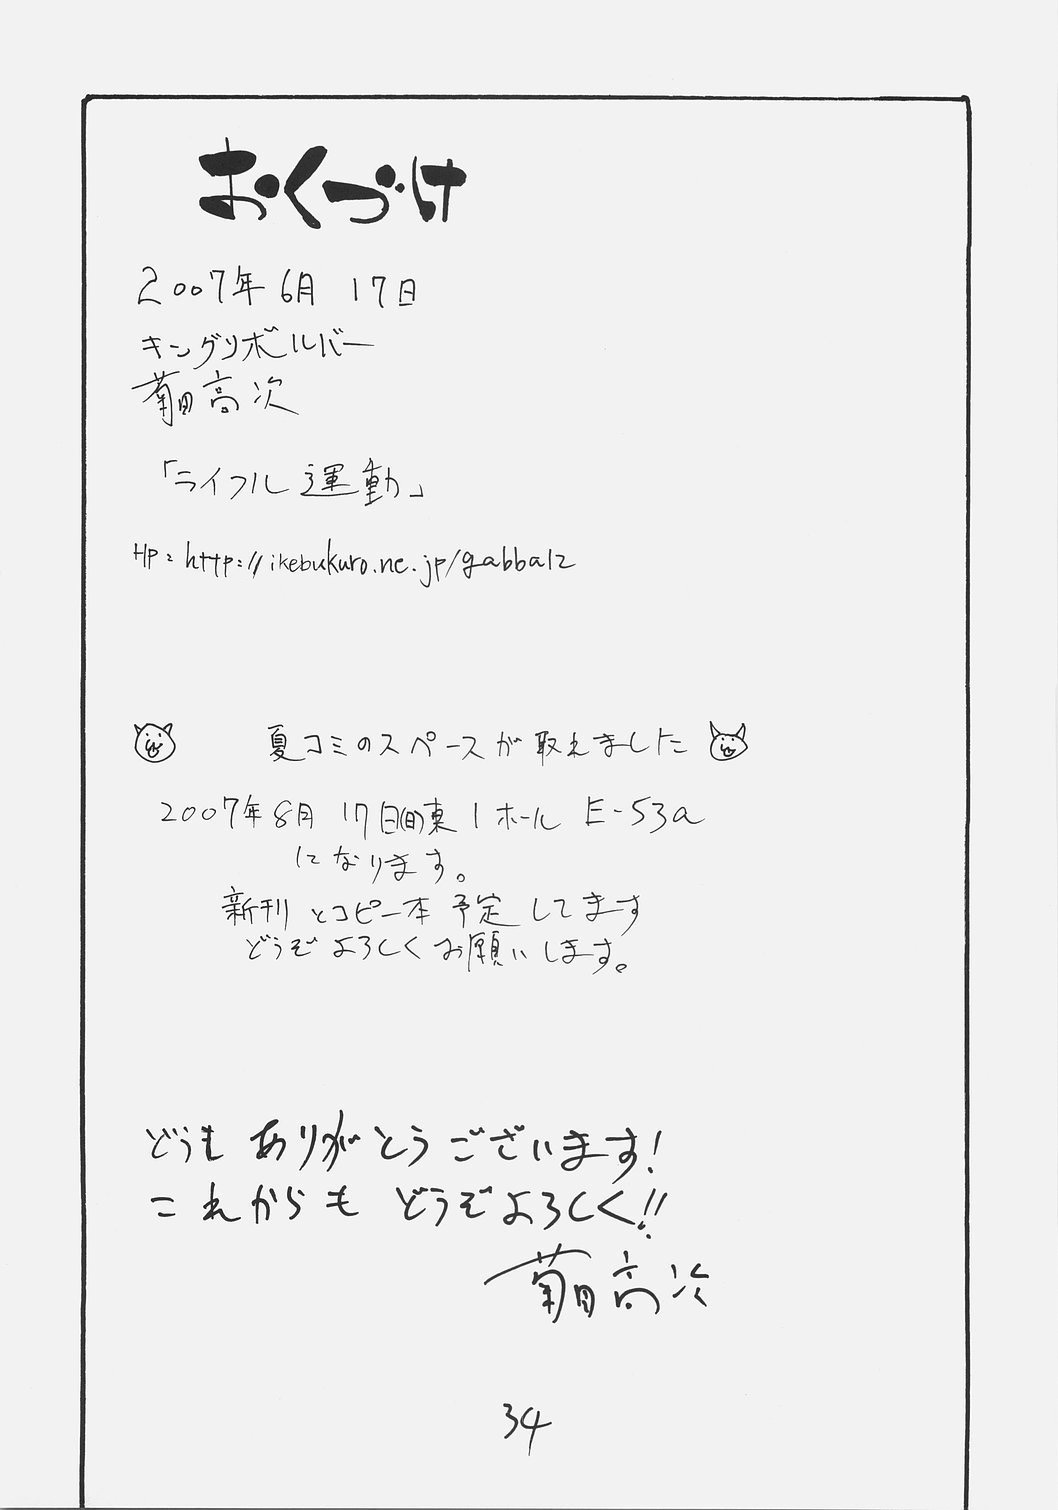 おくづけ
2007年6月17日
キングリボルバー
菊田高次
「ライフル運動」
HP: http://ikebukuro.ne.jp/gabbalz
夏コミのスペースが取れました
2007年8月17日(金)東1ホール E-53a
になります。
新刊とコピー本予定してます
どうぞよろしくお願いします。
どうもありがとうございます!
これからもどうぞよろしく!!
菊田高次
34